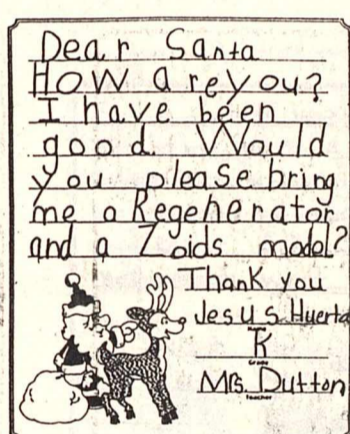 Dear Santa
How are you?
I have been
good. Would
you please bring
me a Regenerator
and a Zoids model?
Thank you
Jesus Huerta
Name
K
Grade
Mrs. Dutton
Teacher